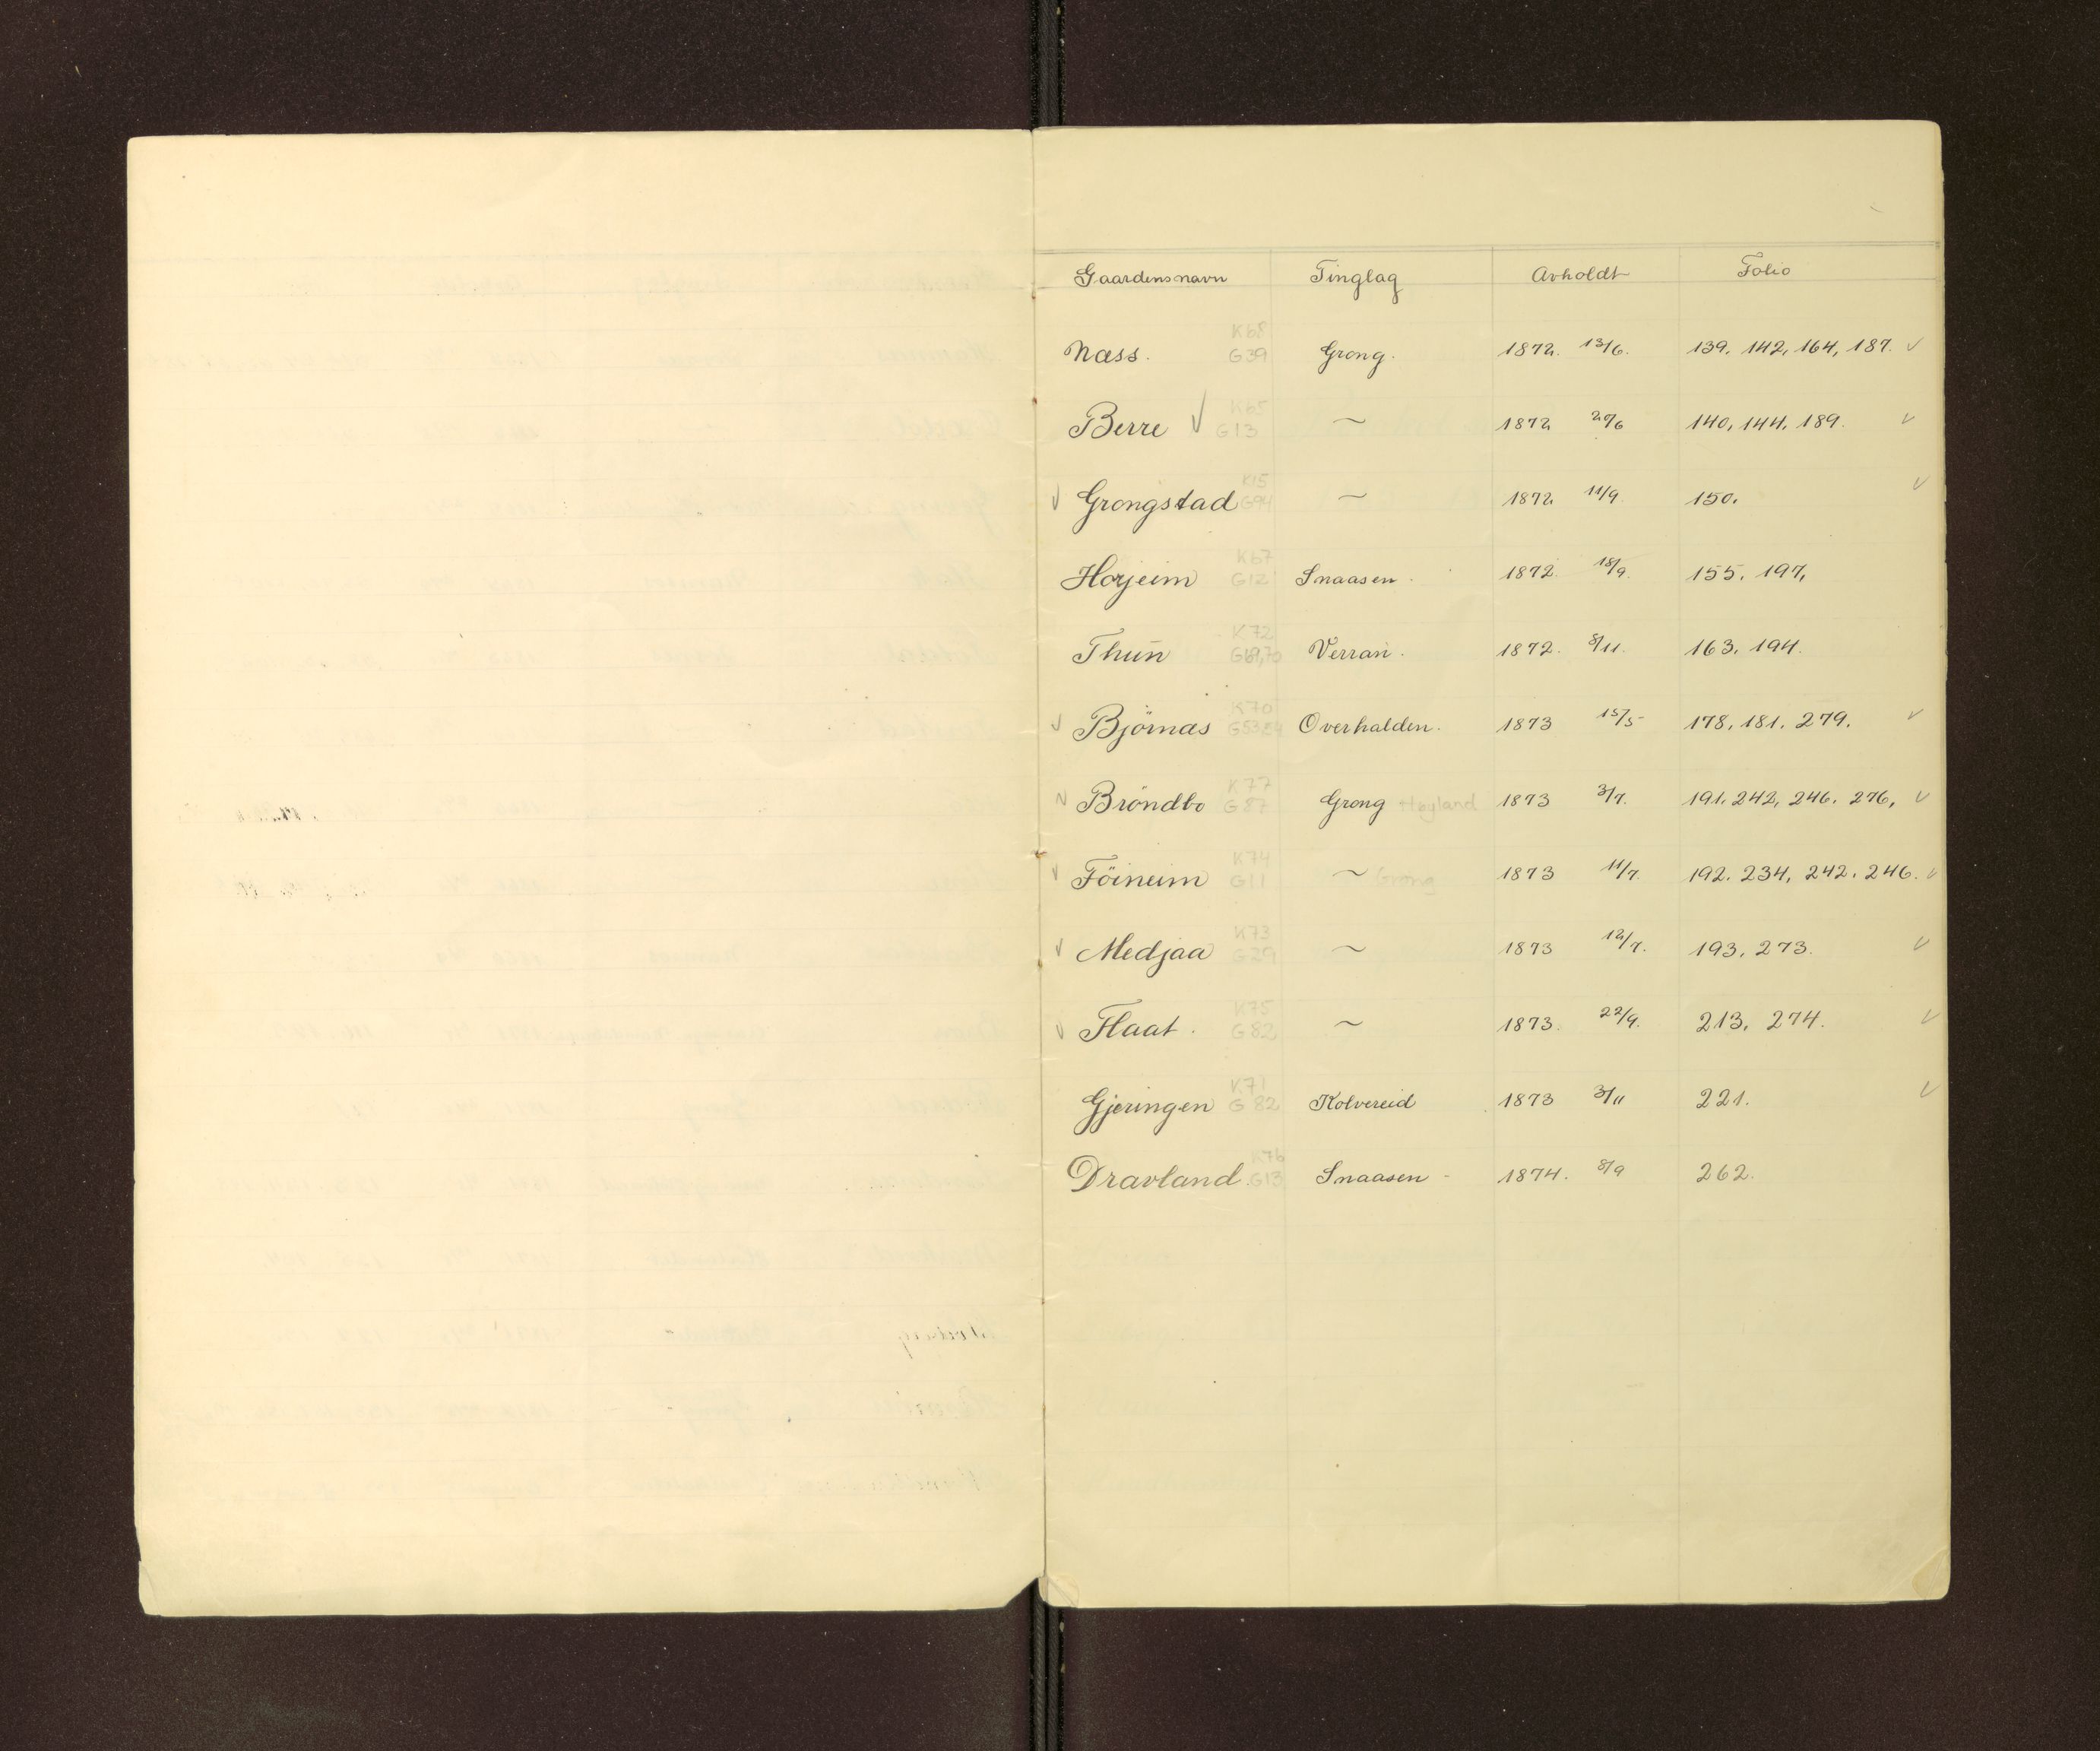 Gaardensnavn Tinglag Avholdt Folio
K68
Næss. G39 Grong. 1872. 13/6. 139. 142, 164, 187. ✓
K65
Berre ✓ G13 ~ 1872 20/6 140, 144. 189. ✓
K15
✓ Grongstad G94 ~ 1872 11/9 150. ✓
K67
Horjeim G12 Snaasen 1872 18/9. 155. 197,
K72
Thun G69,70 Verran. 1872. 8/11. 163. 194.
K70
✓ Björnæs Overhalden. 1873 15/5 178, 181. 279. ✓
K77
Bröndbo G87 Grong Høyland 1873 3/7. 191. 242, 246. 276, ✓
K74
✓ Föineim G11 ~ Grong 1873 11/7. 192. 234, 242. 246. ✓
K73
✓ Medjaa G29 ~ 1873 12/7. 193. 273. ✓
K75
✓ Flaat. G82 ~ 1873. 22/9. 213. 274. ✓
K71
Gjeringen G82 Kolvereid 1873 3/11 221. ✓
K76
Dravland. G13 Snaasen - 1874. 8/9 262.